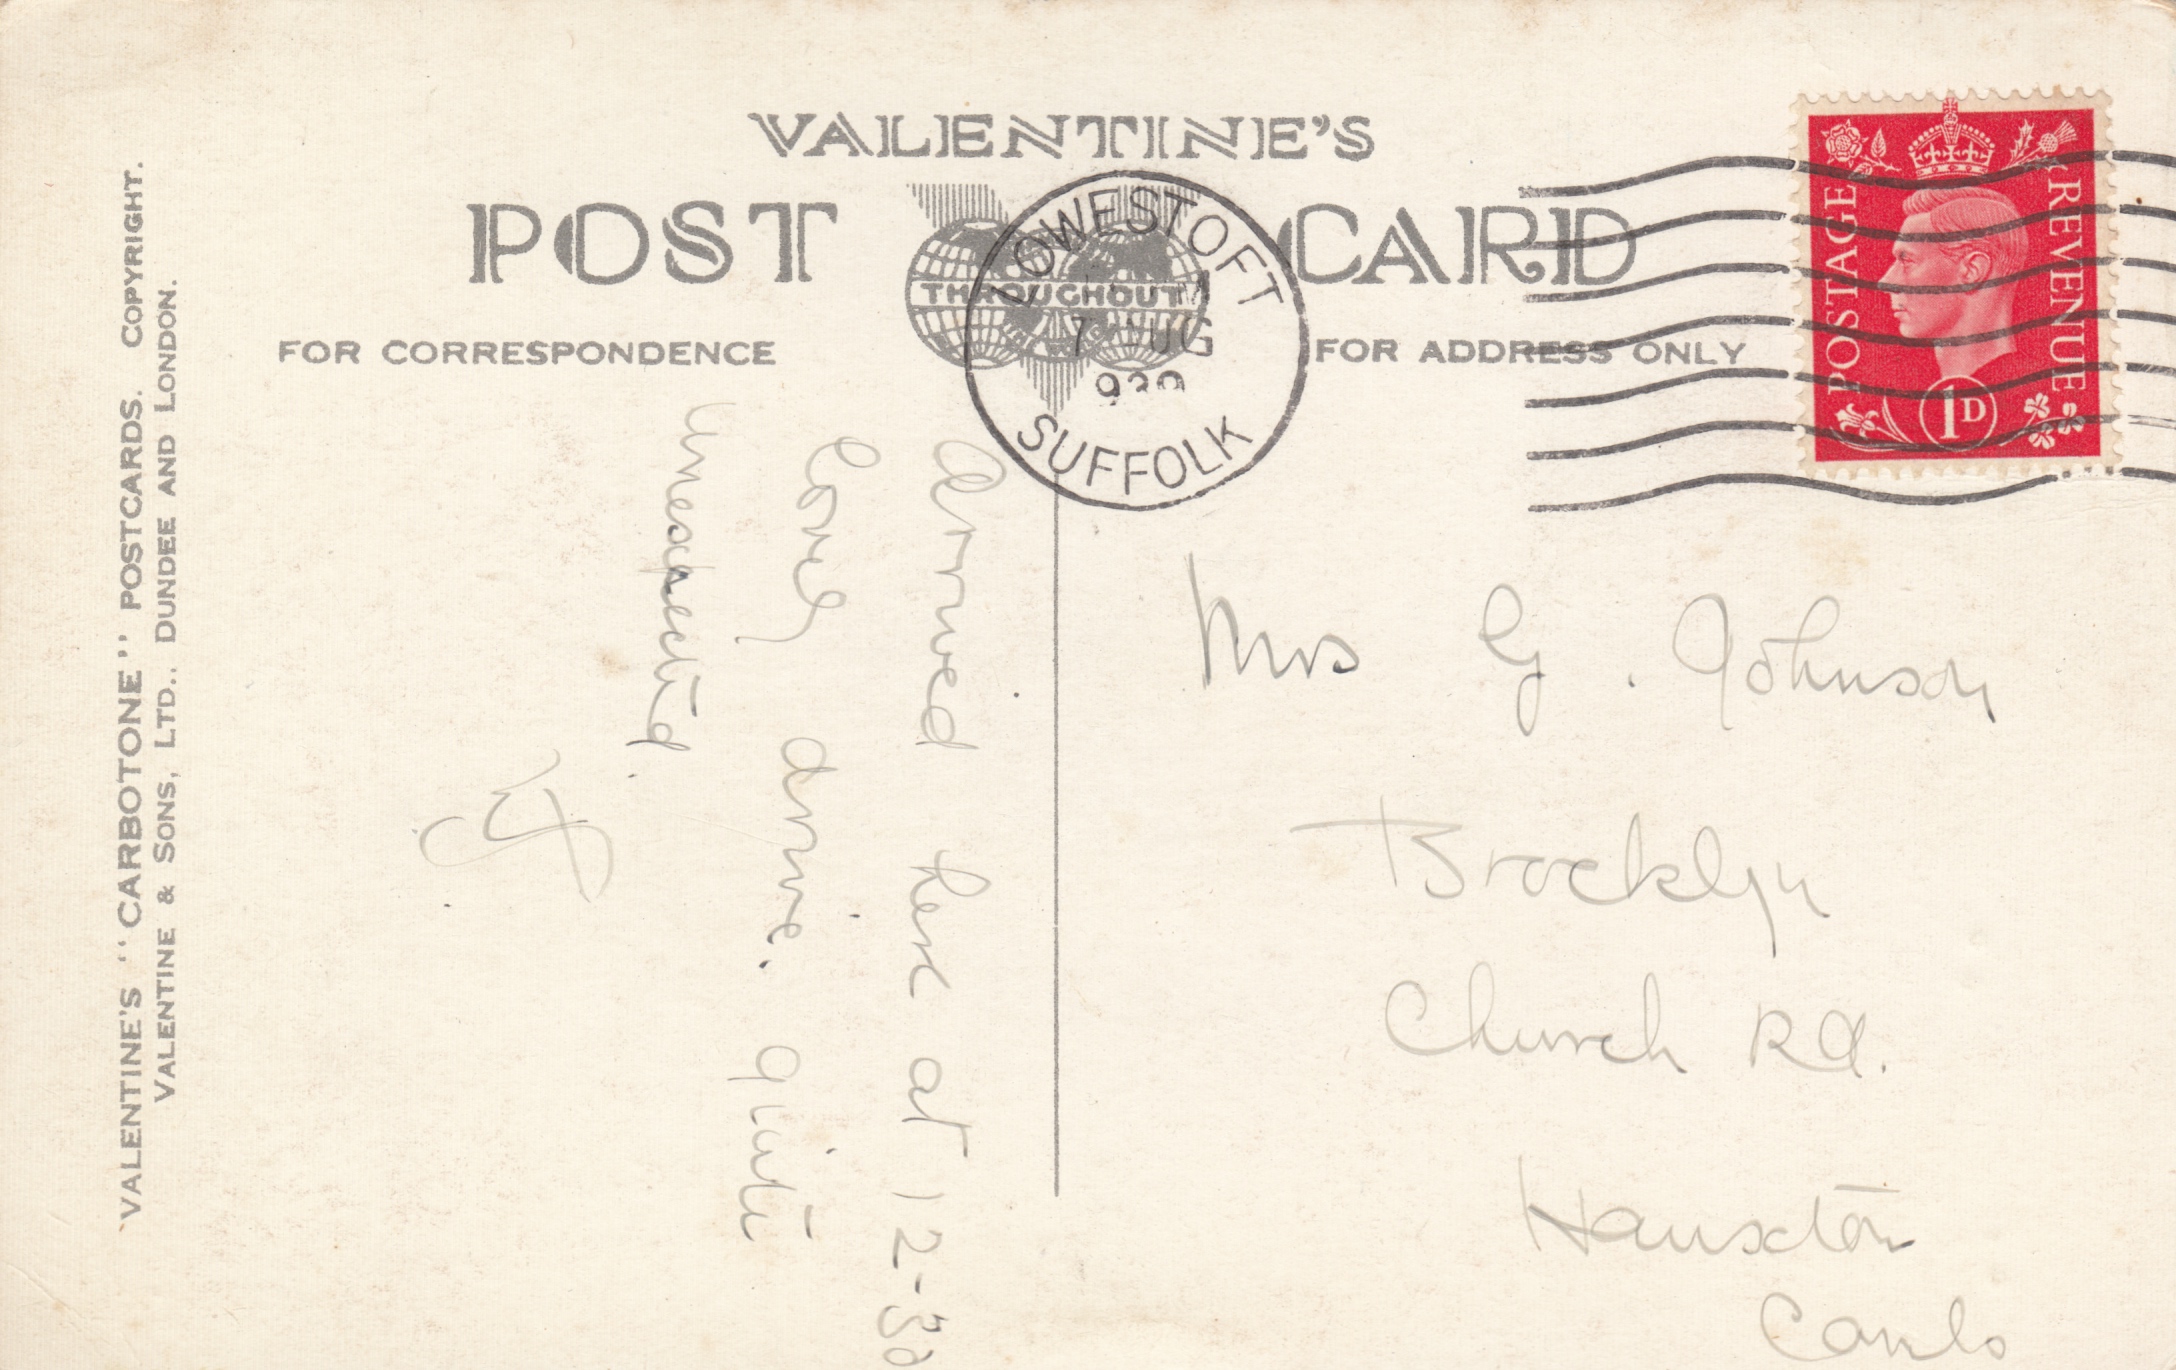 VALENTINE'S
POST CARD
THROUGHOUT
FOR CORRESPONDENCE
FOR ADDRESS ONLY
LOWESTOFT
7 AUG
SUFFOLK
POSTAGE
REVENUE
1D
VALENTINE'S "CARBOTONE" POSTCARDS. COPYRIGHT.
VALENTINE & SONS, LTD., DUNDEE AND LONDON.
Arrived here at 12-30
Lovely drive. quite
unexpected.
Mrs G. Johnson
Brooklyn
Church Rd.
Hauxton
Cambs